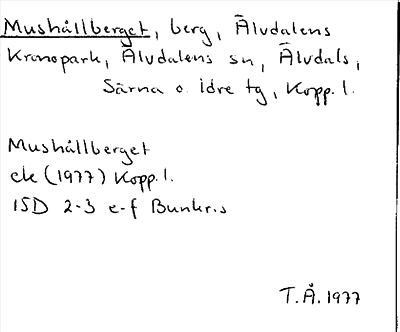 Mushållberget, berg, Älvdalens
Kronopark, Älvdalens sn, Älvdals,
Särna o. Idre tg, Kopp. l.
Mushållberget
ek (1977) Kopp. l.
15D 2-3 e-f Bunkr.s
T.Å. 1977